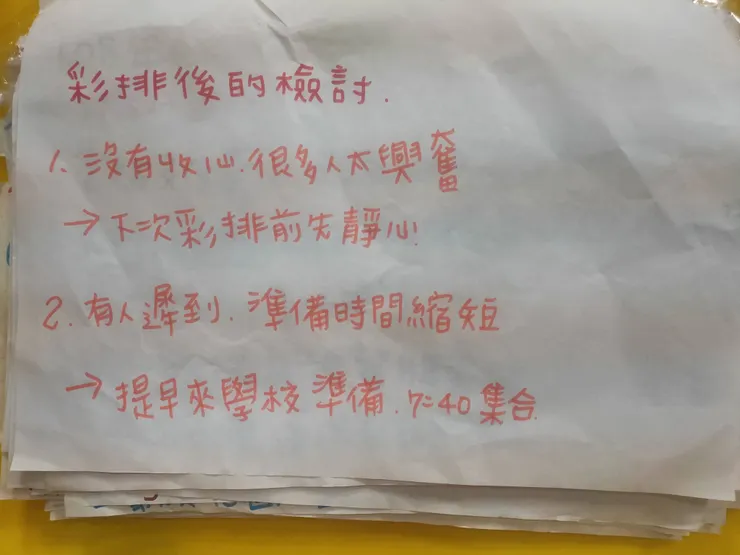 彩排後的檢討.
1. 沒有收心.很多人太興奮
→下次彩排前先靜心!
2. 有人遲到.準備時間縮短
→提早來學校準備.7:40集合.